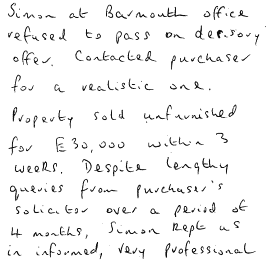 Simon at Barmouth office
refused to pass on derisory
offer. Contacted purchaser
for a realistic one.
Property sold unfurnished
for £30,000 within 3
weeks. Despite lengthy
queries from purchaser's
solicitor over a period of
4 months, Simon kept us
in informed, very professional